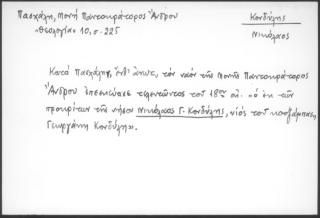 Πασχάλη, Μονή Παντοκράτορος Άνδρου
Κονδύλης
«Θεολογία» 10, σ. 225
Νικόλαος
Κατά Πασχάλην, ἔνθ' ἀνωτ., τόν ναόν τῆς Μονῆς Παντοκράτορος
Ἄνδρου ἐπεσκεύασε τελευτῶντος τοῦ 18ου αἰ. «ὁ ἐκ τῶν
προκρίτων τῆς νήσου Νικόλαος Γ. Κονδύλης, υἱός τοῦ
Γεωργάκη Κονδύλη».